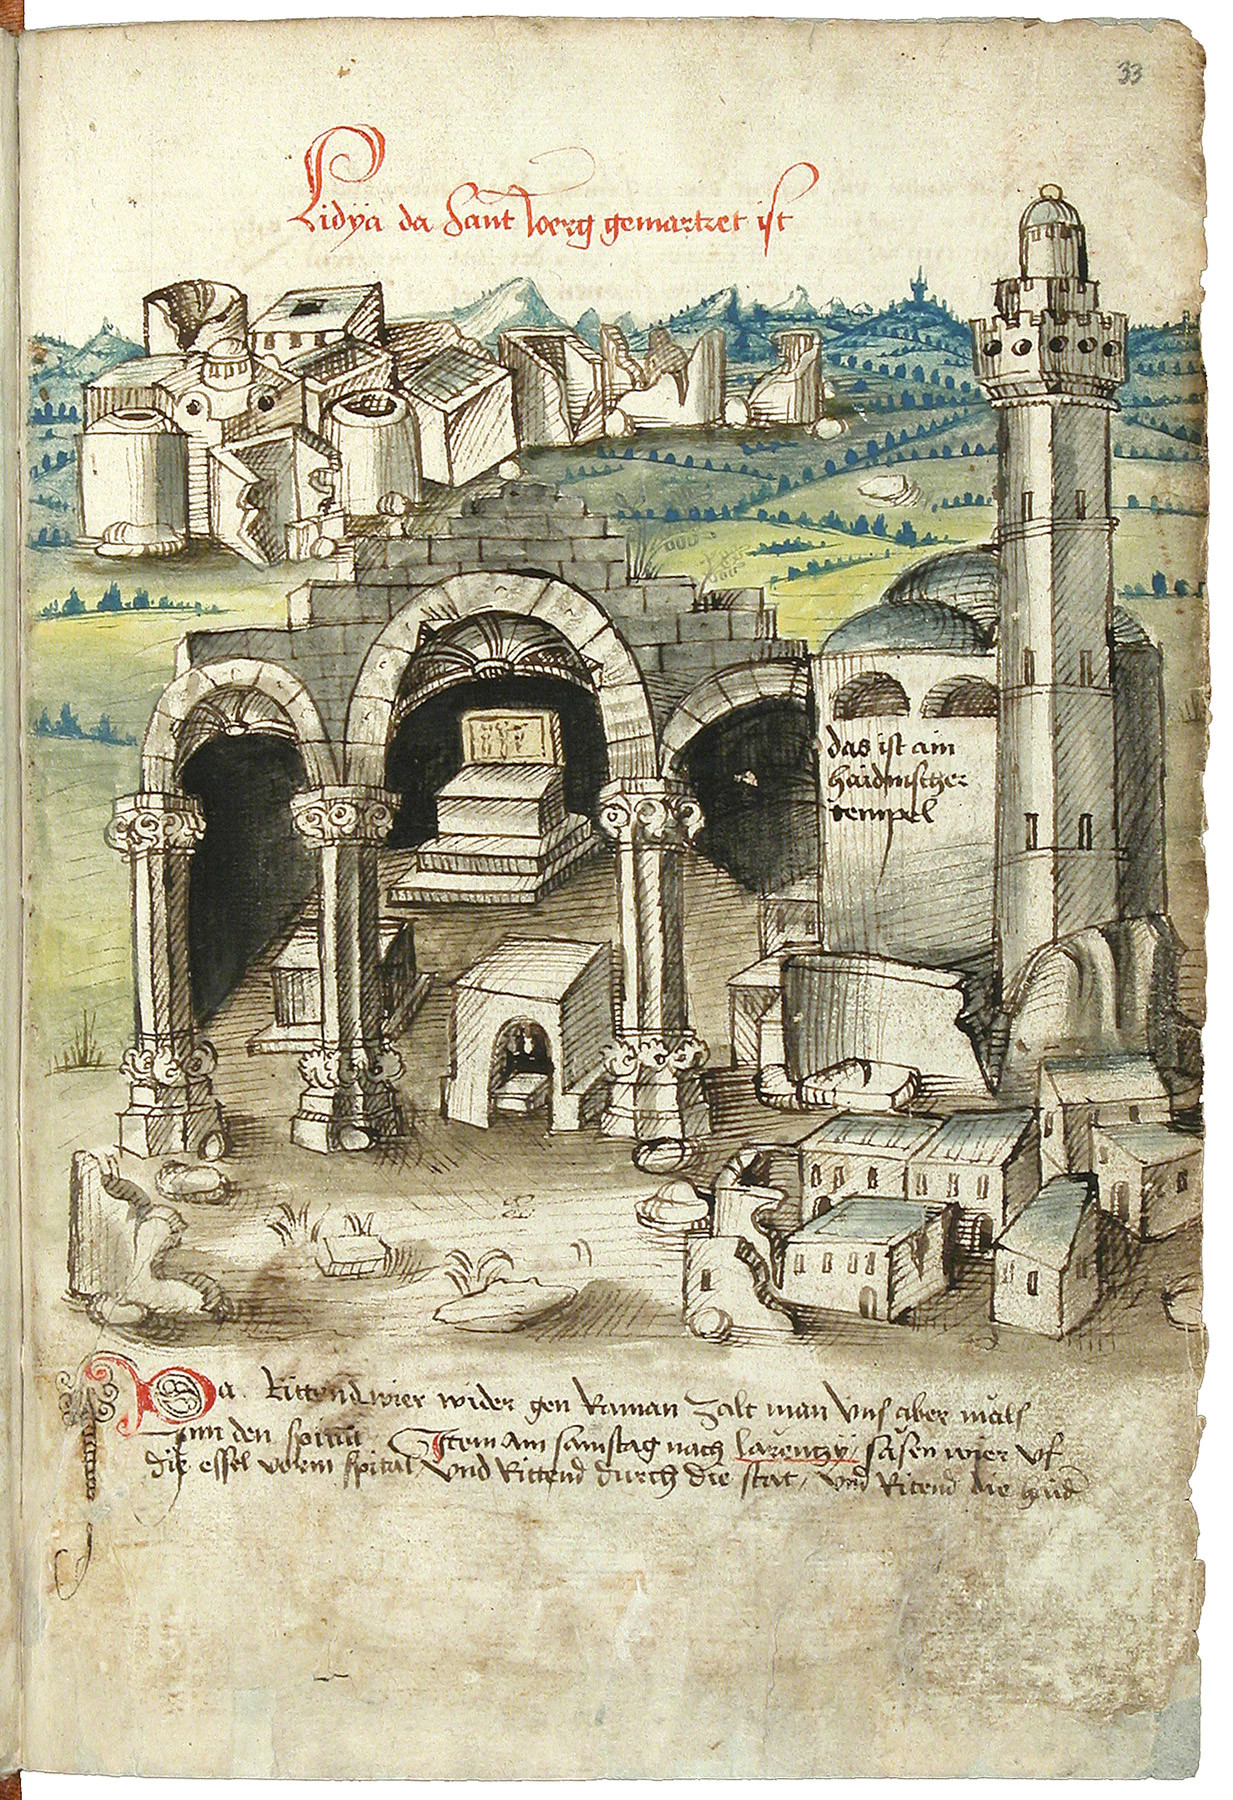 33
Lidya da Sant Joerg gemartret ist
das ist ain
haidnischer
tempel
Da Rittend wier wider gen Raman Zalt man vns aber mals
Inn den spital Item Am samstag nach larentzÿ sasen wier vf
die essel vorem spital / vnd Rittend durch die stat / vnd Ritend die